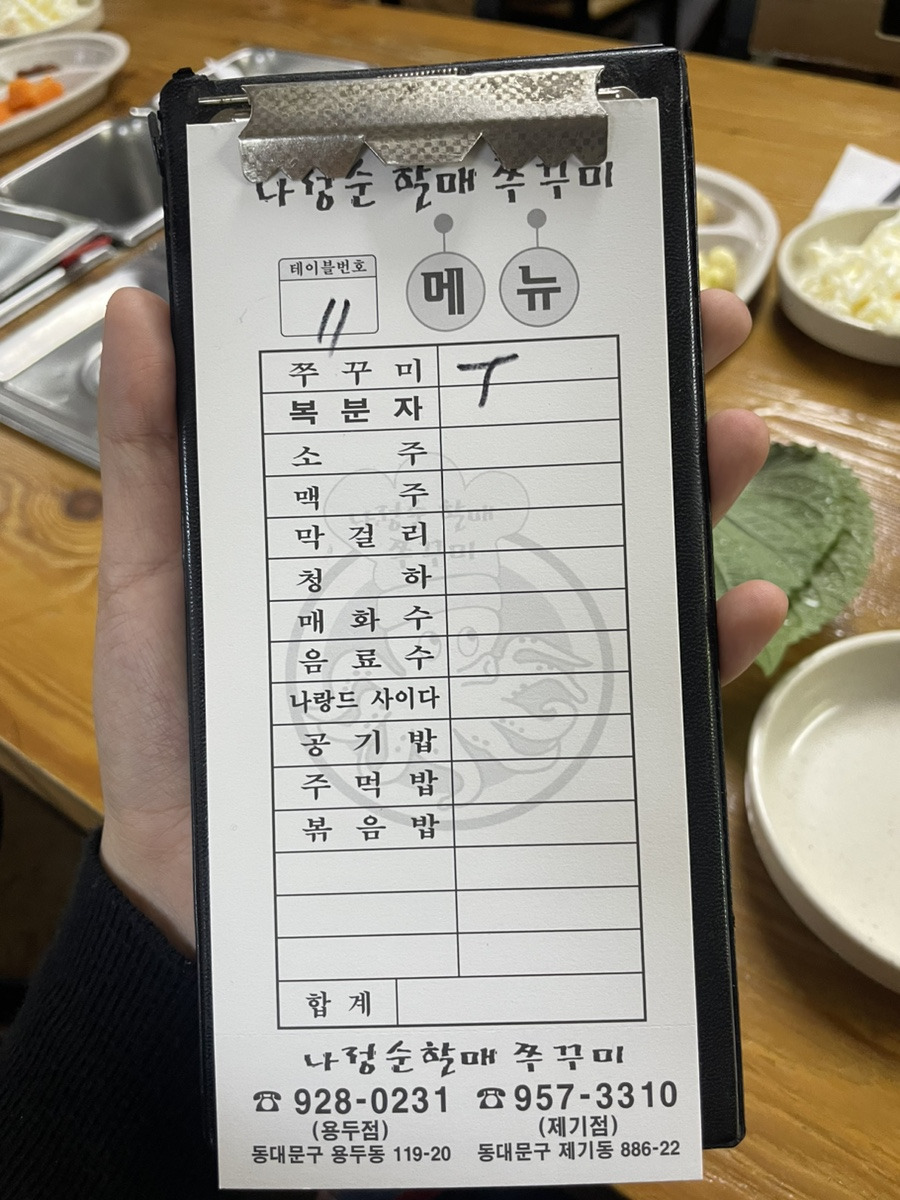 나정순 할매 쭈꾸미
테이블번호
11
메 뉴
쭈 꾸 미 T
복 분 자
소 주
맥 주
막 걸 리
청 하
매 화 수
음 료 수
나랑드 사이다
공 기 밥
주 먹 밥
볶 음 밥
합 계
나정순할매 쭈꾸미
☎ 928-0231 ☎ 957-3310
(용두점) (제기점)
동대문구 용두동 119-20 동대문구 제기동 886-22
나정순 할매
쭈꾸미